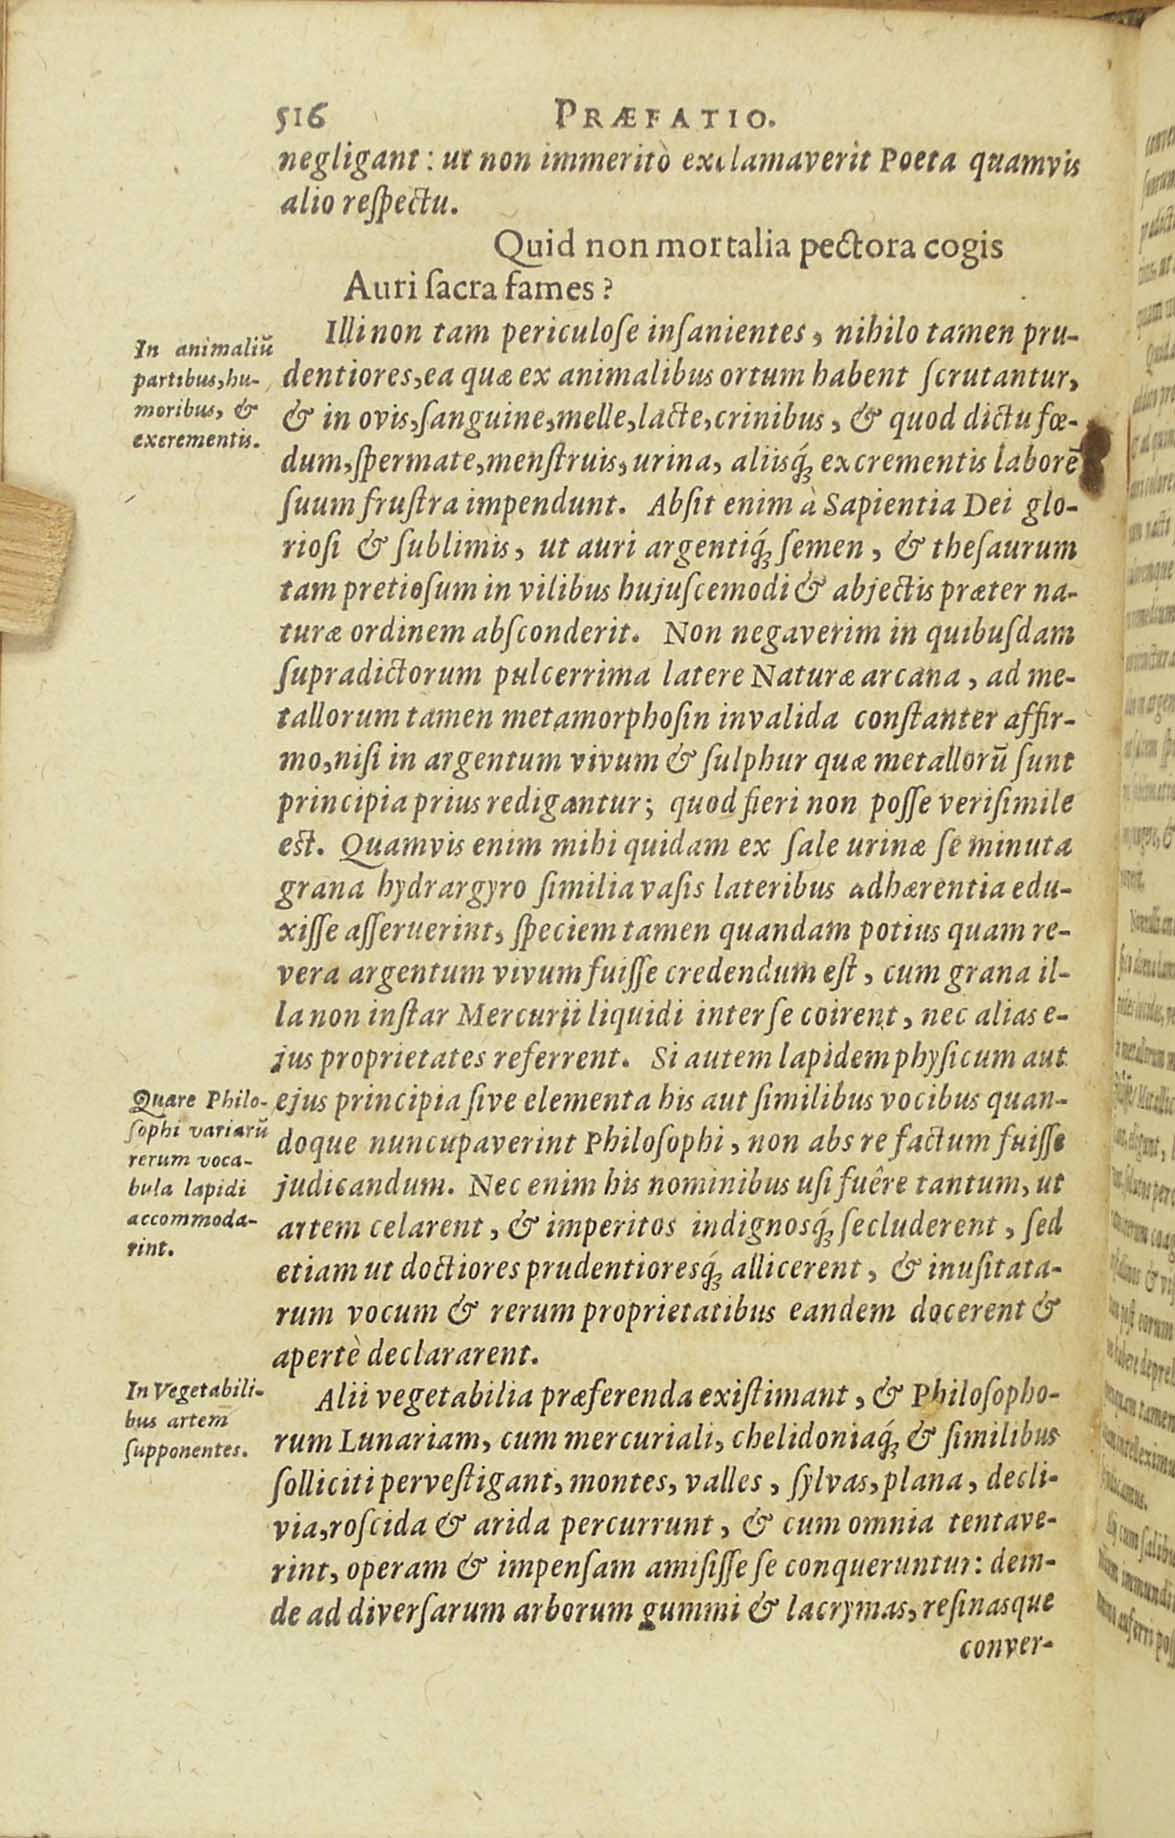 516 PRÆFATIO.
negligant: ut non immeritò exclamaverit Poeta quamvis
alio reſpectu.
Quid non mortalia pectora cogis
Auri ſacra fames?
In animaliū
partibus, hu-
moribus, &
excrementis.
Illi non tam periculoſe inſanientes, nihilo tamen pru-
dentiores, ea quæ ex animalibus ortum habent ſcrutantur,
& in ovis, ſanguine, melle, lacte, crinibus, & quod dictu fœ-
dum, ſpermate, menſtruis, urina, aliisq́; excrementis laborē
ſuum fruſtra impendunt. Abſit enim à Sapientia Dei glo-
rioſi & ſublimis, ut auri argentiq́; ſemen, & theſaurum
tam pretioſum in vilibus hujuſcemodi & abjectis præter na-
turæ ordinem abſconderit. Non negaverim in quibuſdam
ſupradictorum pulcerrima latere Naturæ arcana, ad me-
tallorum tamen metamorphoſin invalida conſtanter affir-
mo, niſi in argentum vivum & ſulphur quæ metallorū ſunt
principia prius redigantur; quod fieri non poſſe veriſimile
eſt. Quamvis enim mihi quidam ex ſale urinæ ſe minuta
grana hydrargyro ſimilia vaſis lateribus adhærentia edu-
xiſſe aſſeruerint, ſpeciem tamen quandam potius quam re-
vera argentum vivum fuiſſe credendum eſt, cum grana il-
la non inſtar Mercurii liquidi inter ſe coirent, nec alias e-
jus proprietates referrent. Si autem lapidem phyſicum aut
Quare Philo-
ſophi variarū
rerum voca-
bula lapidi
accommoda-
rint.
ejus principia ſive elementa his aut ſimilibus vocibus quan-
doque nuncupaverint Philoſophi, non abs re factum fuiſſe
judicandum. Nec enim his nominibus uſi fuêre tantum, ut
artem celarent, & imperitos indignosq́; ſecluderent, ſed
etiam ut doctiores prudentioresq́; allicerent, & inuſitata-
rum vocum & rerum proprietatibus eandem docerent &
apertè declararent.
In Vegetabili-
bus artem
ſupponentes.
Alii vegetabilia præferenda exiſtimant, & Philoſopho-
rum Lunariam, cum mercuriali, chelidoniaq́; & ſimilibus
ſolliciti perveſtigant, montes, valles, ſylvas, plana, decli-
via, roſcida & arida percurrunt, & cum omnia tentave-
rint, operam & impenſam amiſiſſe ſe conqueruntur: dein-
de ad diverſarum arborum gummi & lacrymas, reſinasque
conver-